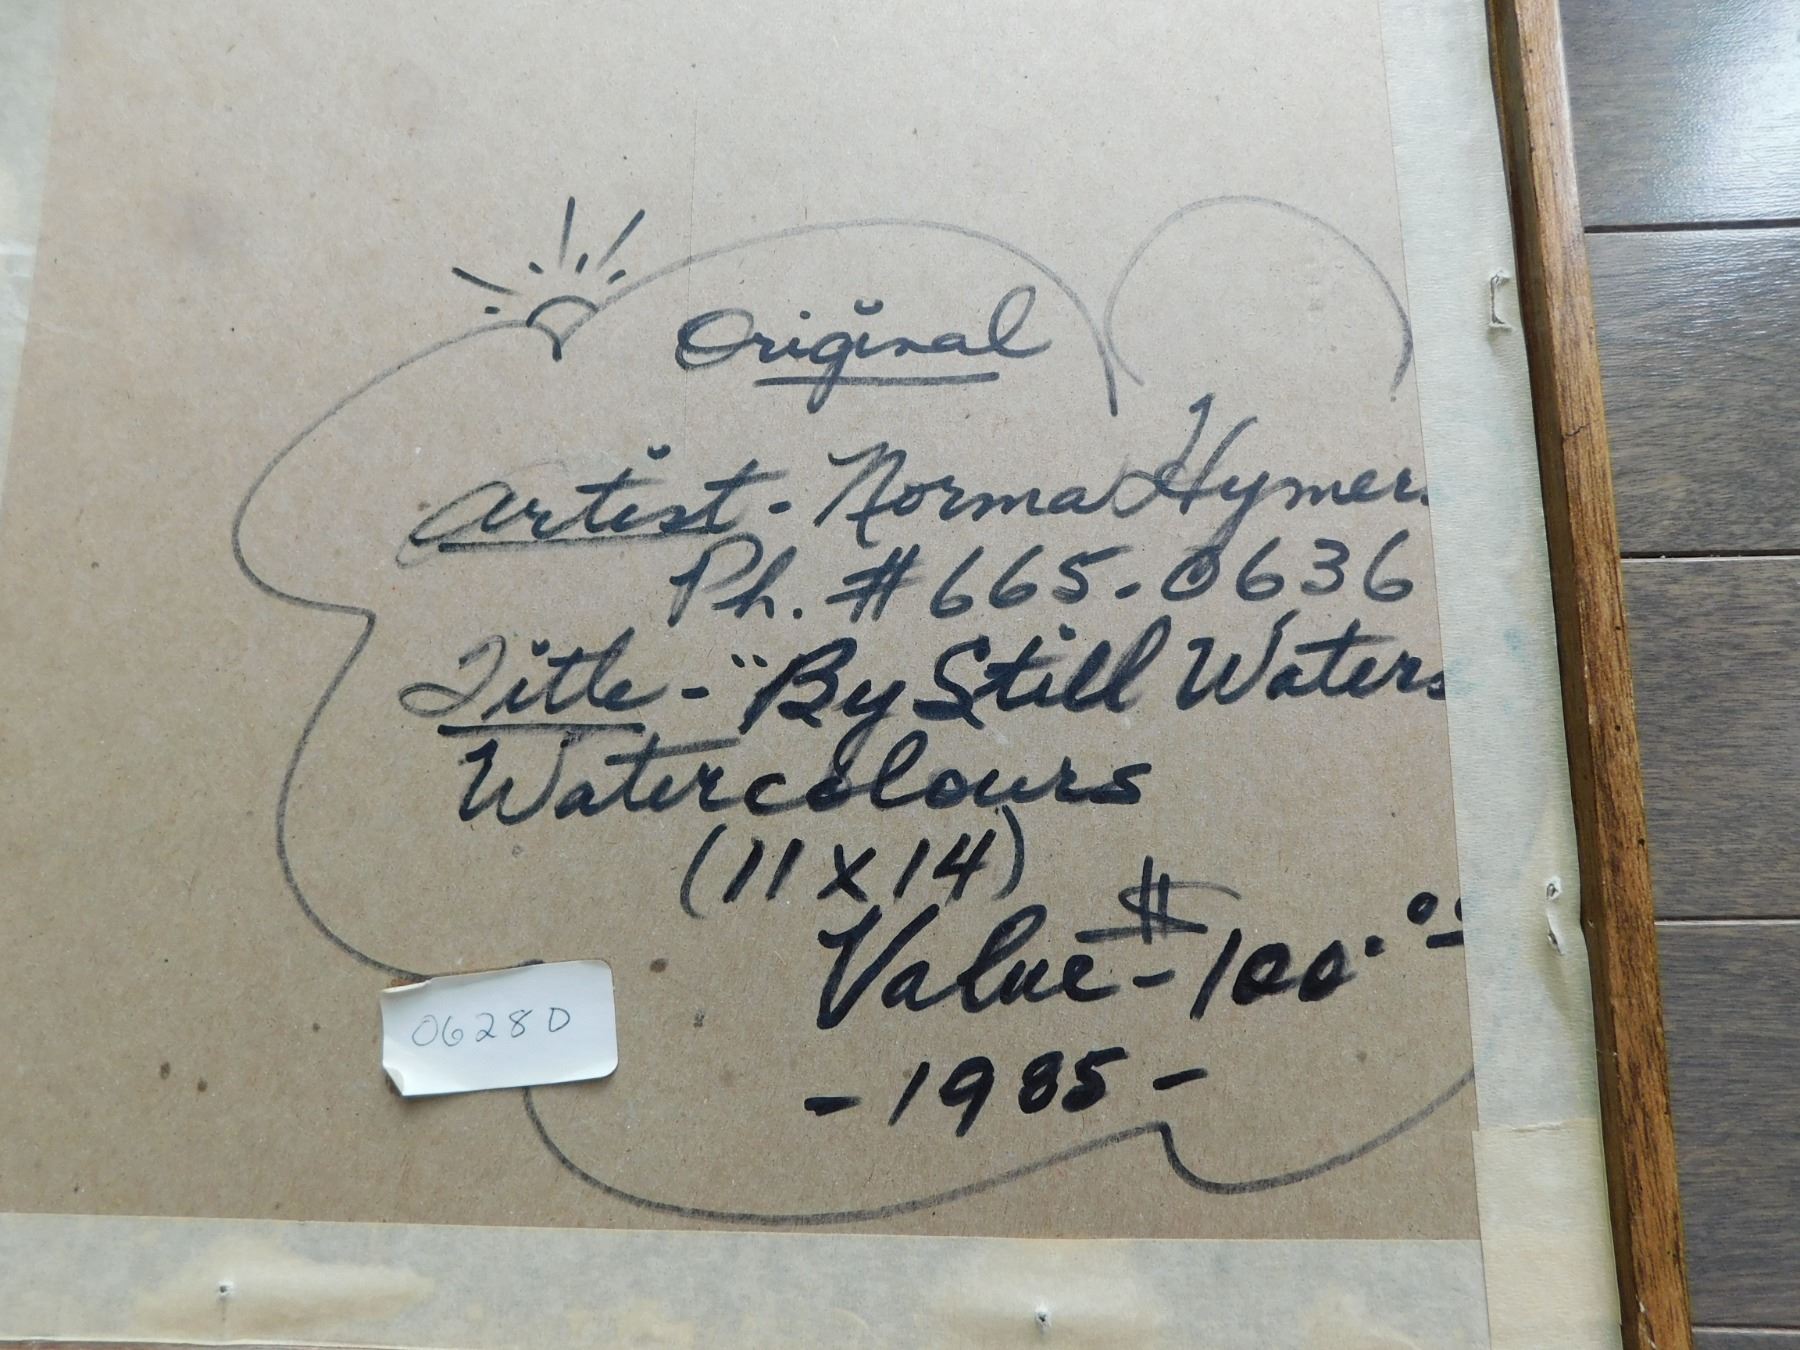 Original
Artist - Norma Hymers
Ph. # 665-0636
Title - "By Still Waters
Watercolours
(11 x 14)
Value - $100.00
- 1985 -
06280